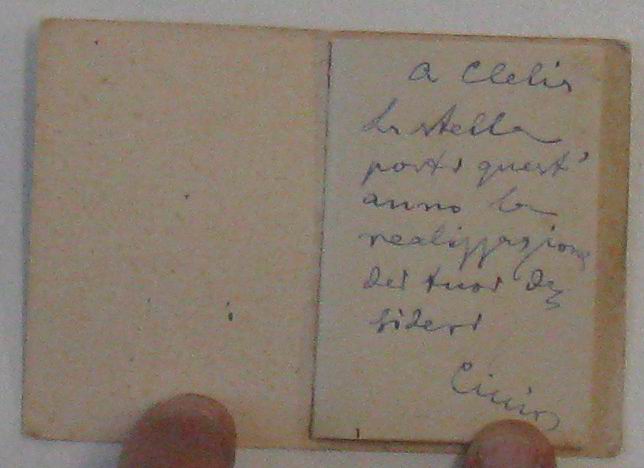 a Clelia
la stella
porti quest'
anno la
realizzazione
dei tuoi de
sideri